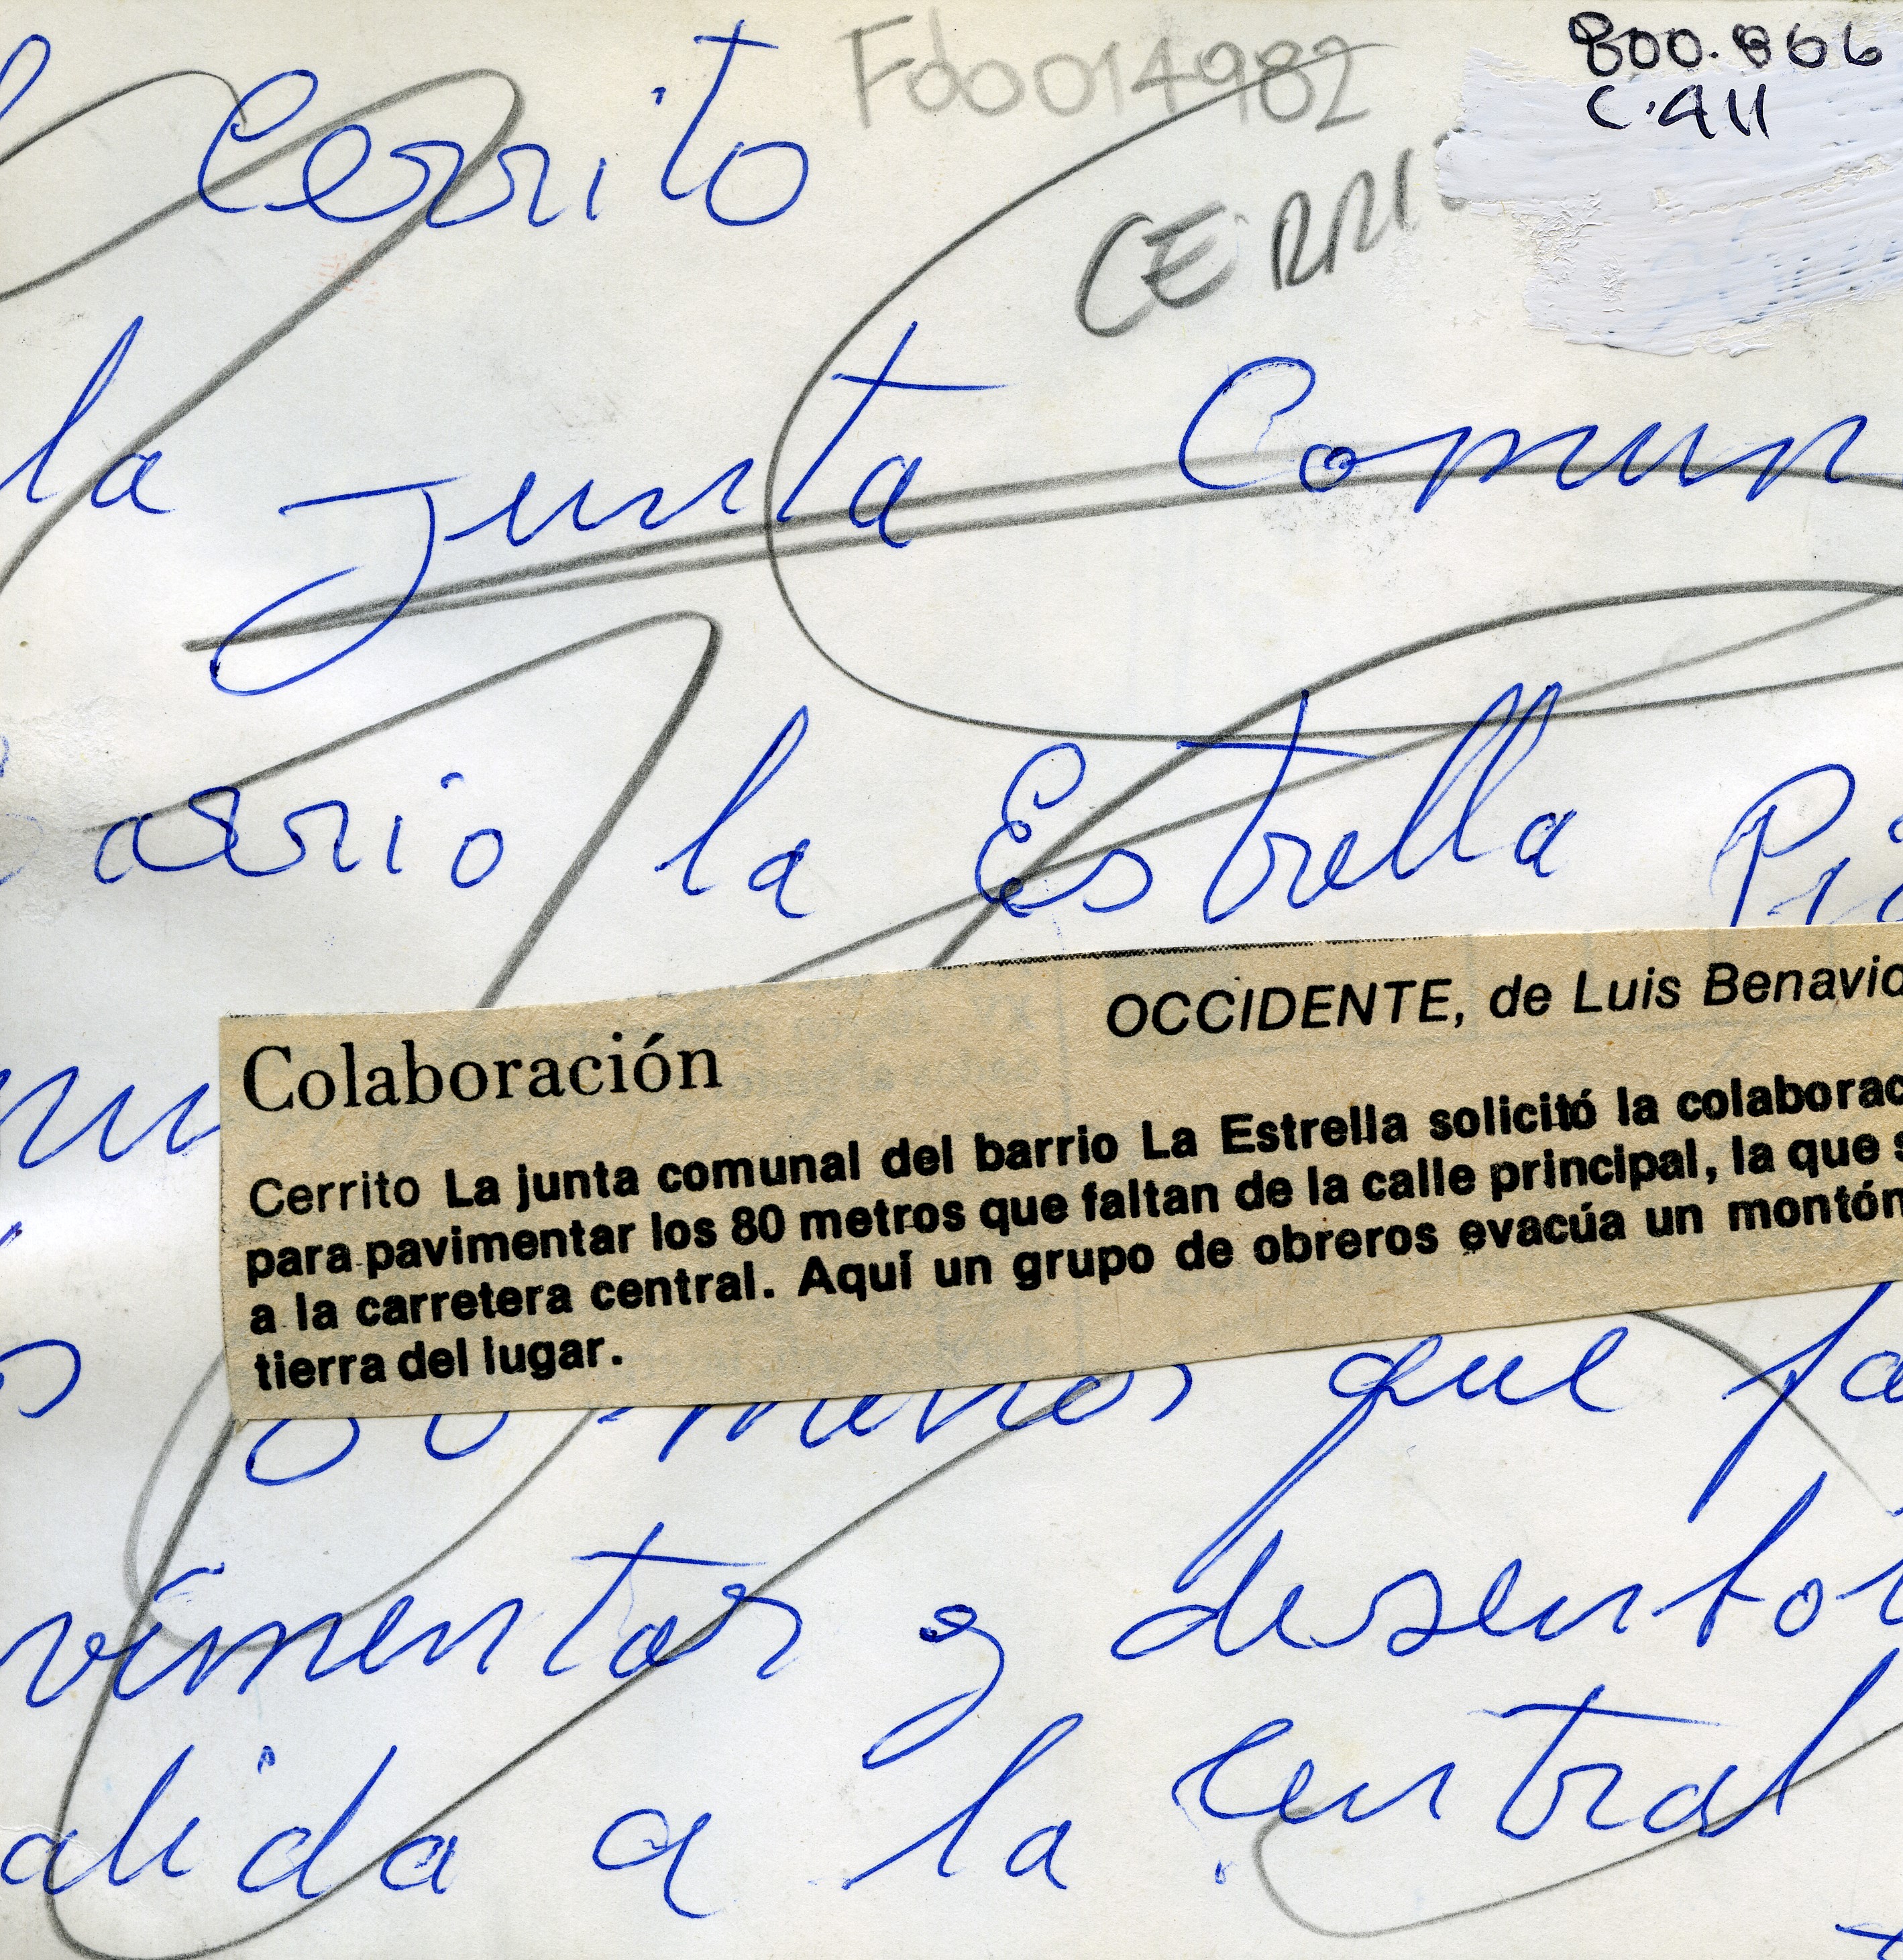 Fdo0014982
800.866
C.411
Cerrito
CERRI
la Junta Comun
arrio la Estrella
OCCIDENTE, de Luis Benavid
Colaboración
Cerrito La junta comunal del barrio La Estrella solicitó la colaborac
para pavimentar los 80 metros que faltan de la calle principal, la que s
a la carretera central. Aquí un grupo de obreros evacúa un montón
tierra del lugar.
80 metros que fa
vimentar y desentor
alida a la Central